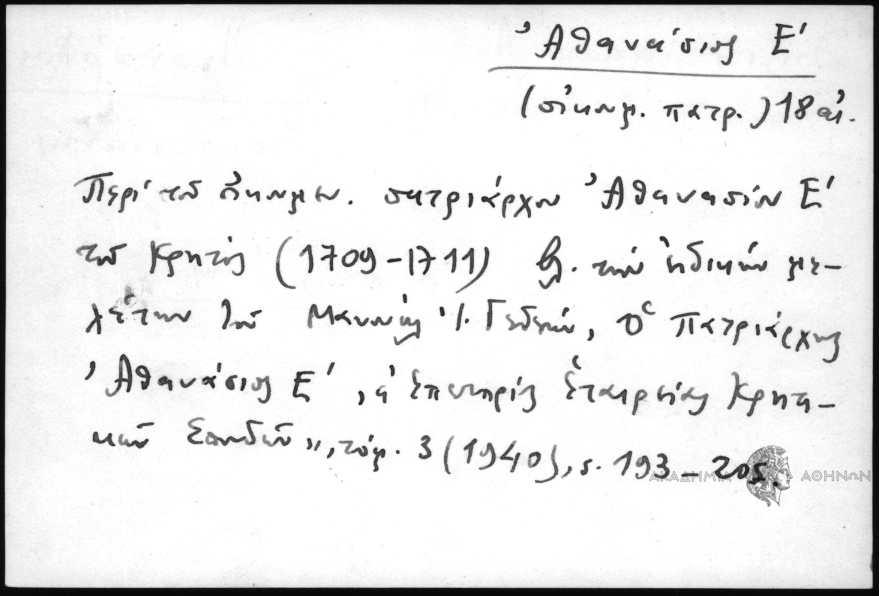 Ἀθανάσιος Ε'
(οἰκουμ. πατρ.) 18 αἰ.
Περὶ τοῦ οἰκουμεν. πατριάρχου Ἀθανασίου Ε'
τοῦ Κρητός (1709-1711) βλ. τὴν εἰδικὴν με-
λέτην τοῦ Μανουὴλ Ἰ. Γεδεών, Ὁ Πατριάρχης
Ἀθανάσιος Ε', « Ἐπετηρὶς Ἑταιρείας Κρητι-
κῶν Σπουδῶν », τόμ. 3 (1940), σ. 193-205.
ΑΚΑΔΗΜΙΑ ΑΘΗΝΩΝ